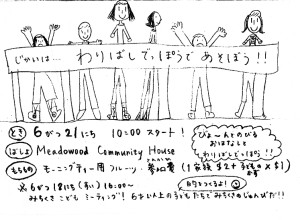 じかいは… わりばしでっぽうであそぼう!!
とき 6がつ21にち 10:00スタート!
ばしょ Meadowood Community House
もちもの モーニングティー用フルーツ、参加費 (1家族 $2+子ども×$1)
さんかひ
びよ〜んとのびる
おはなしと
わりばしでっぽう!!
的もつくるよ!
※6がつ18にち(すい) 16:00〜
みちくさこどもミーティング! 6さい以上の子どもたちとみちくさのじゅんびだ!!